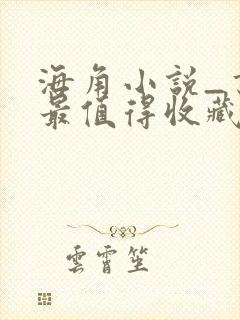 海角小説_
最值得收藏
雲霄笙